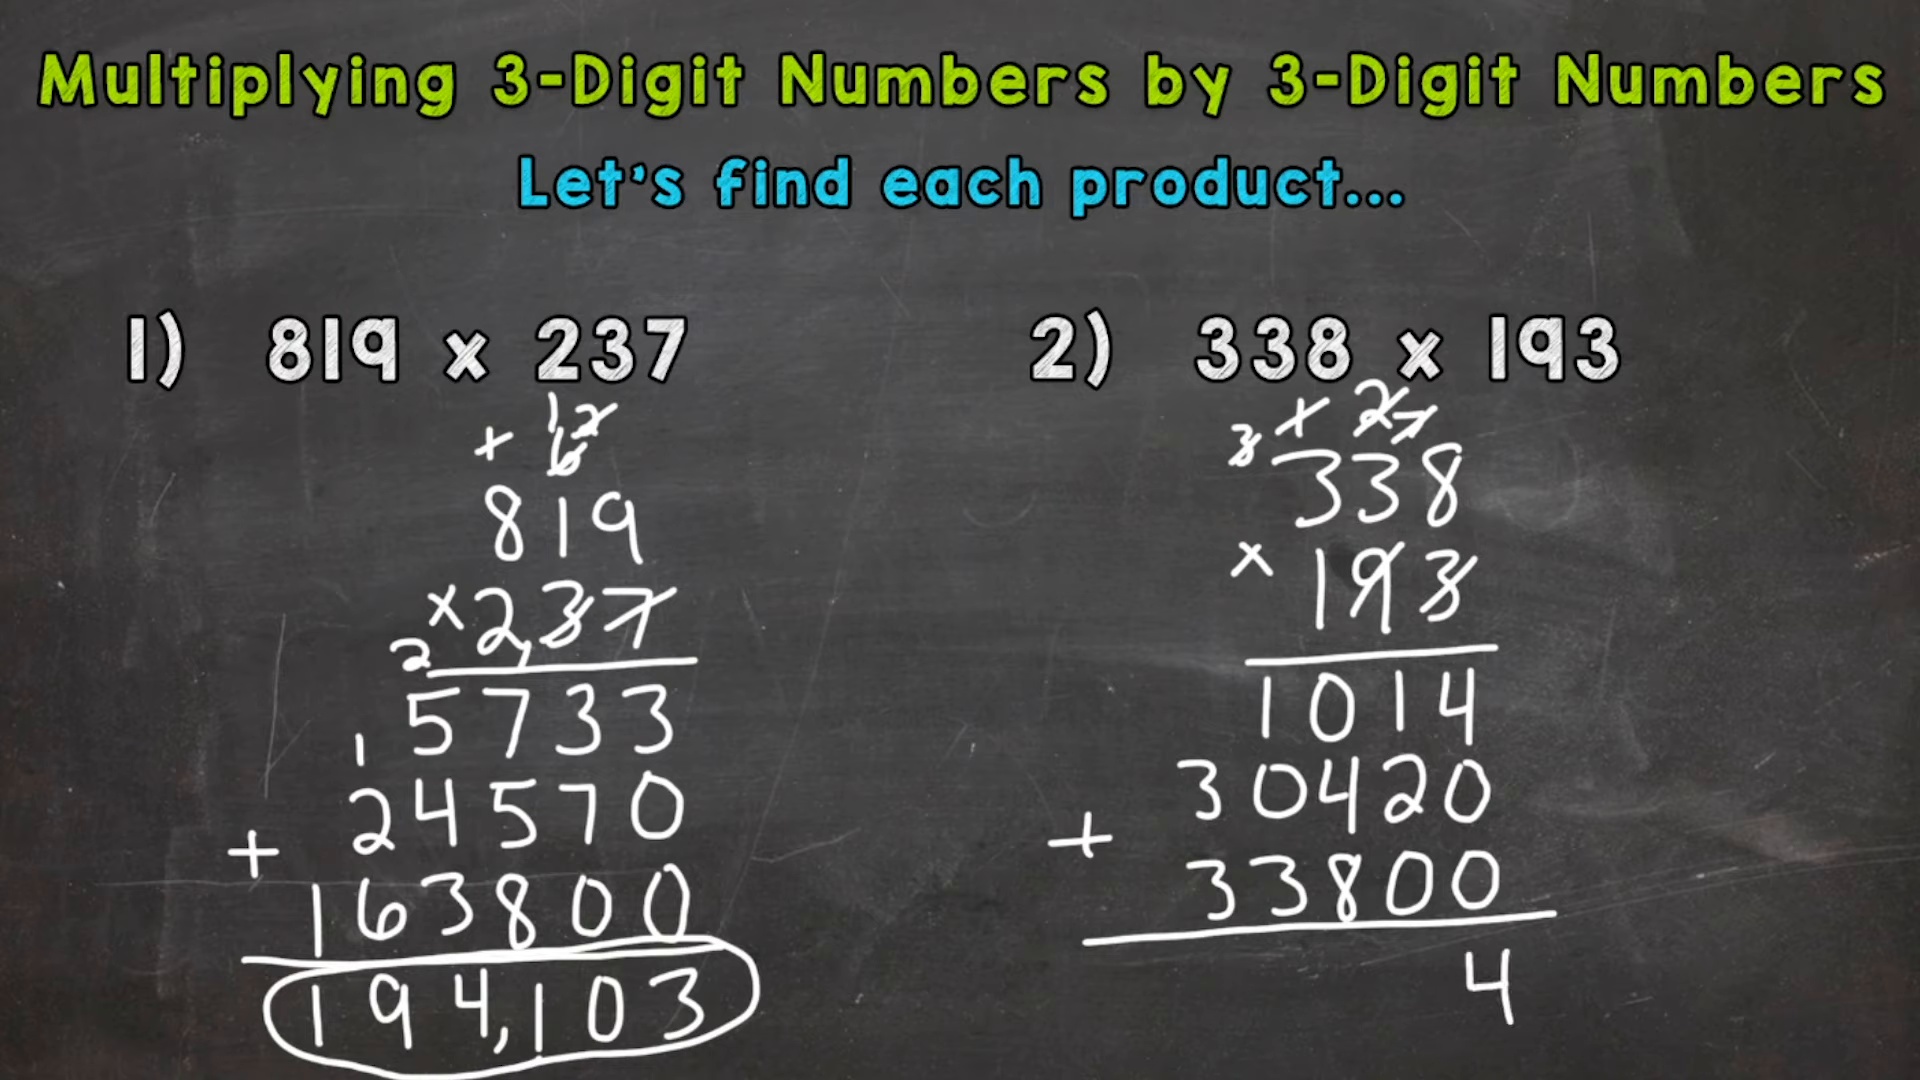 Multiplying 3-Digit Numbers by 3-Digit Numbers
Let's find each product...
1) 819 x 237
1 2
+ 6
819
x 237
2
5733
1
24570
+
163800
194,103
2) 338 x 193
1 2 7
3
338
x 193
1014
30420
+
33800
4